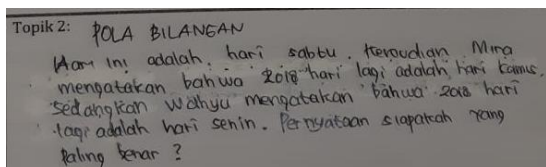 Topik 2: POLA BILANGAN
Hari ini adalah hari sabtu. Kemudian Mina
mengatakan bahwa 2018 hari lagi adalah hari kamis.
sedangkan wahyu mengatakan bahwa 2018 hari
lagi adalah hari senin. Pernyataan siapakah yang
paling benar?